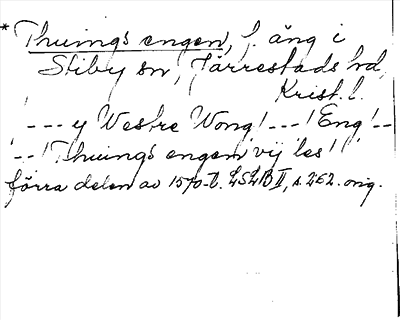 * Thuings engen, f. äng i
Stiby sn, Järrestads hd,
Krist. l.
! --- y Westre Wong! ---! Eng! --
--! Thuings engen vij les!!!
förra delen av 1570-t. LSLB II, s. 262. orig.